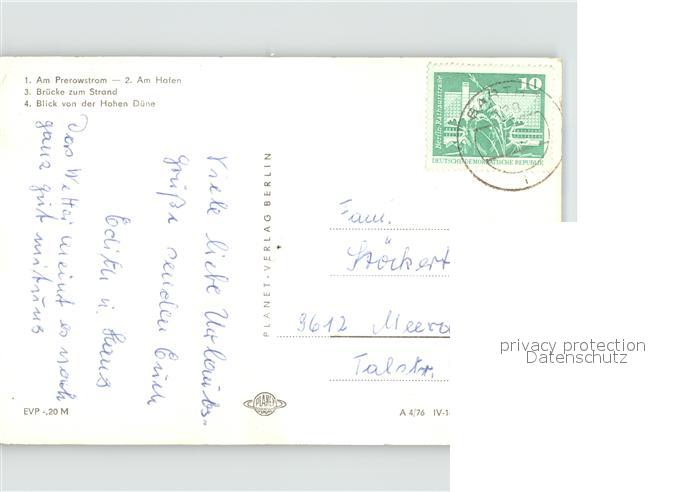 1. Am Prerowstrom — 2. Am Hafen
3. Brücke zum Strand
4. Blick von der Hohen Düne
Viele liebe Urlaubs-
grüße senden Euch
Edith u. Hans
Das Wetter meint es noch
ganz gut mit uns
PLANET-VERLAG BERLIN
10
Berlin, Rathausstraße
DEUTSCHE DEMOKRATISCHE REPUBLIK
BARTH
Fam.
Stöckert
9612 Meera
Talstr.
privacy protection
Datenschutz
EVP -,20 M
PLANET
A 4/76 IV-1